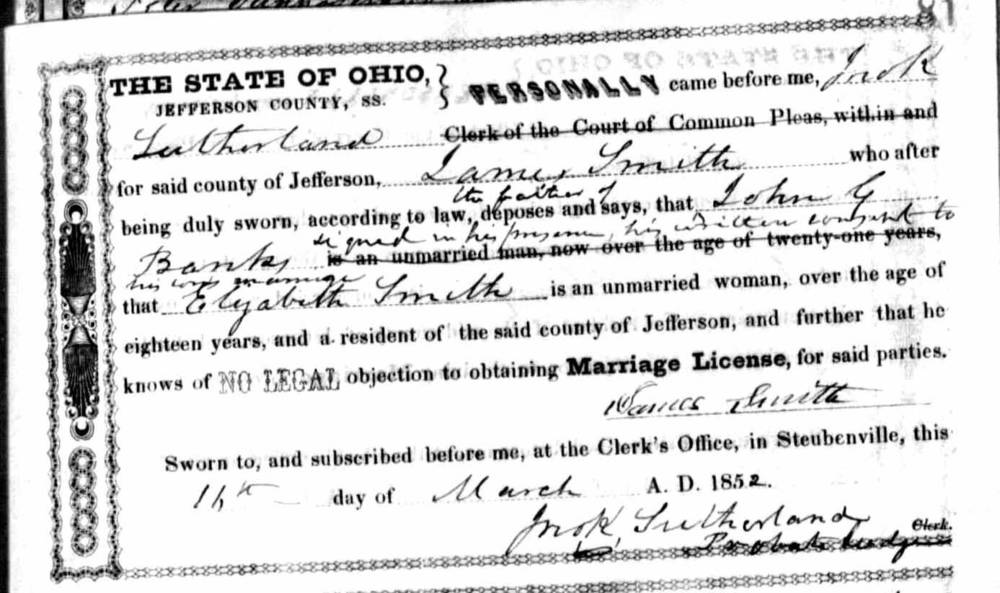 81
THE STATE OF OHIO, } PERSONALLY came before me, Jno K
JEFFERSON COUNTY, SS.
Sutherland Clerk of the Court of Common Pleas, within and
for said county of Jefferson, James Smith who after
the father of
being duly sworn, according to law, deposes and says, that John G
signed in his presence, his written consent to
Banks is an unmarried man, now over the age of twenty-one years,
his sons marriage
that Elizabeth Smith is an unmarried woman, over the age of
eighteen years, and a resident of the said county of Jefferson, and further that he
knows of NO LEGAL objection to obtaining Marriage License, for said parties.
James Smith
Sworn to, and subscribed before me, at the Clerk's Office, in Steubenville, this
day of March A. D. 1852.
Jno K, Sutherland Clerk.
Probate Judge